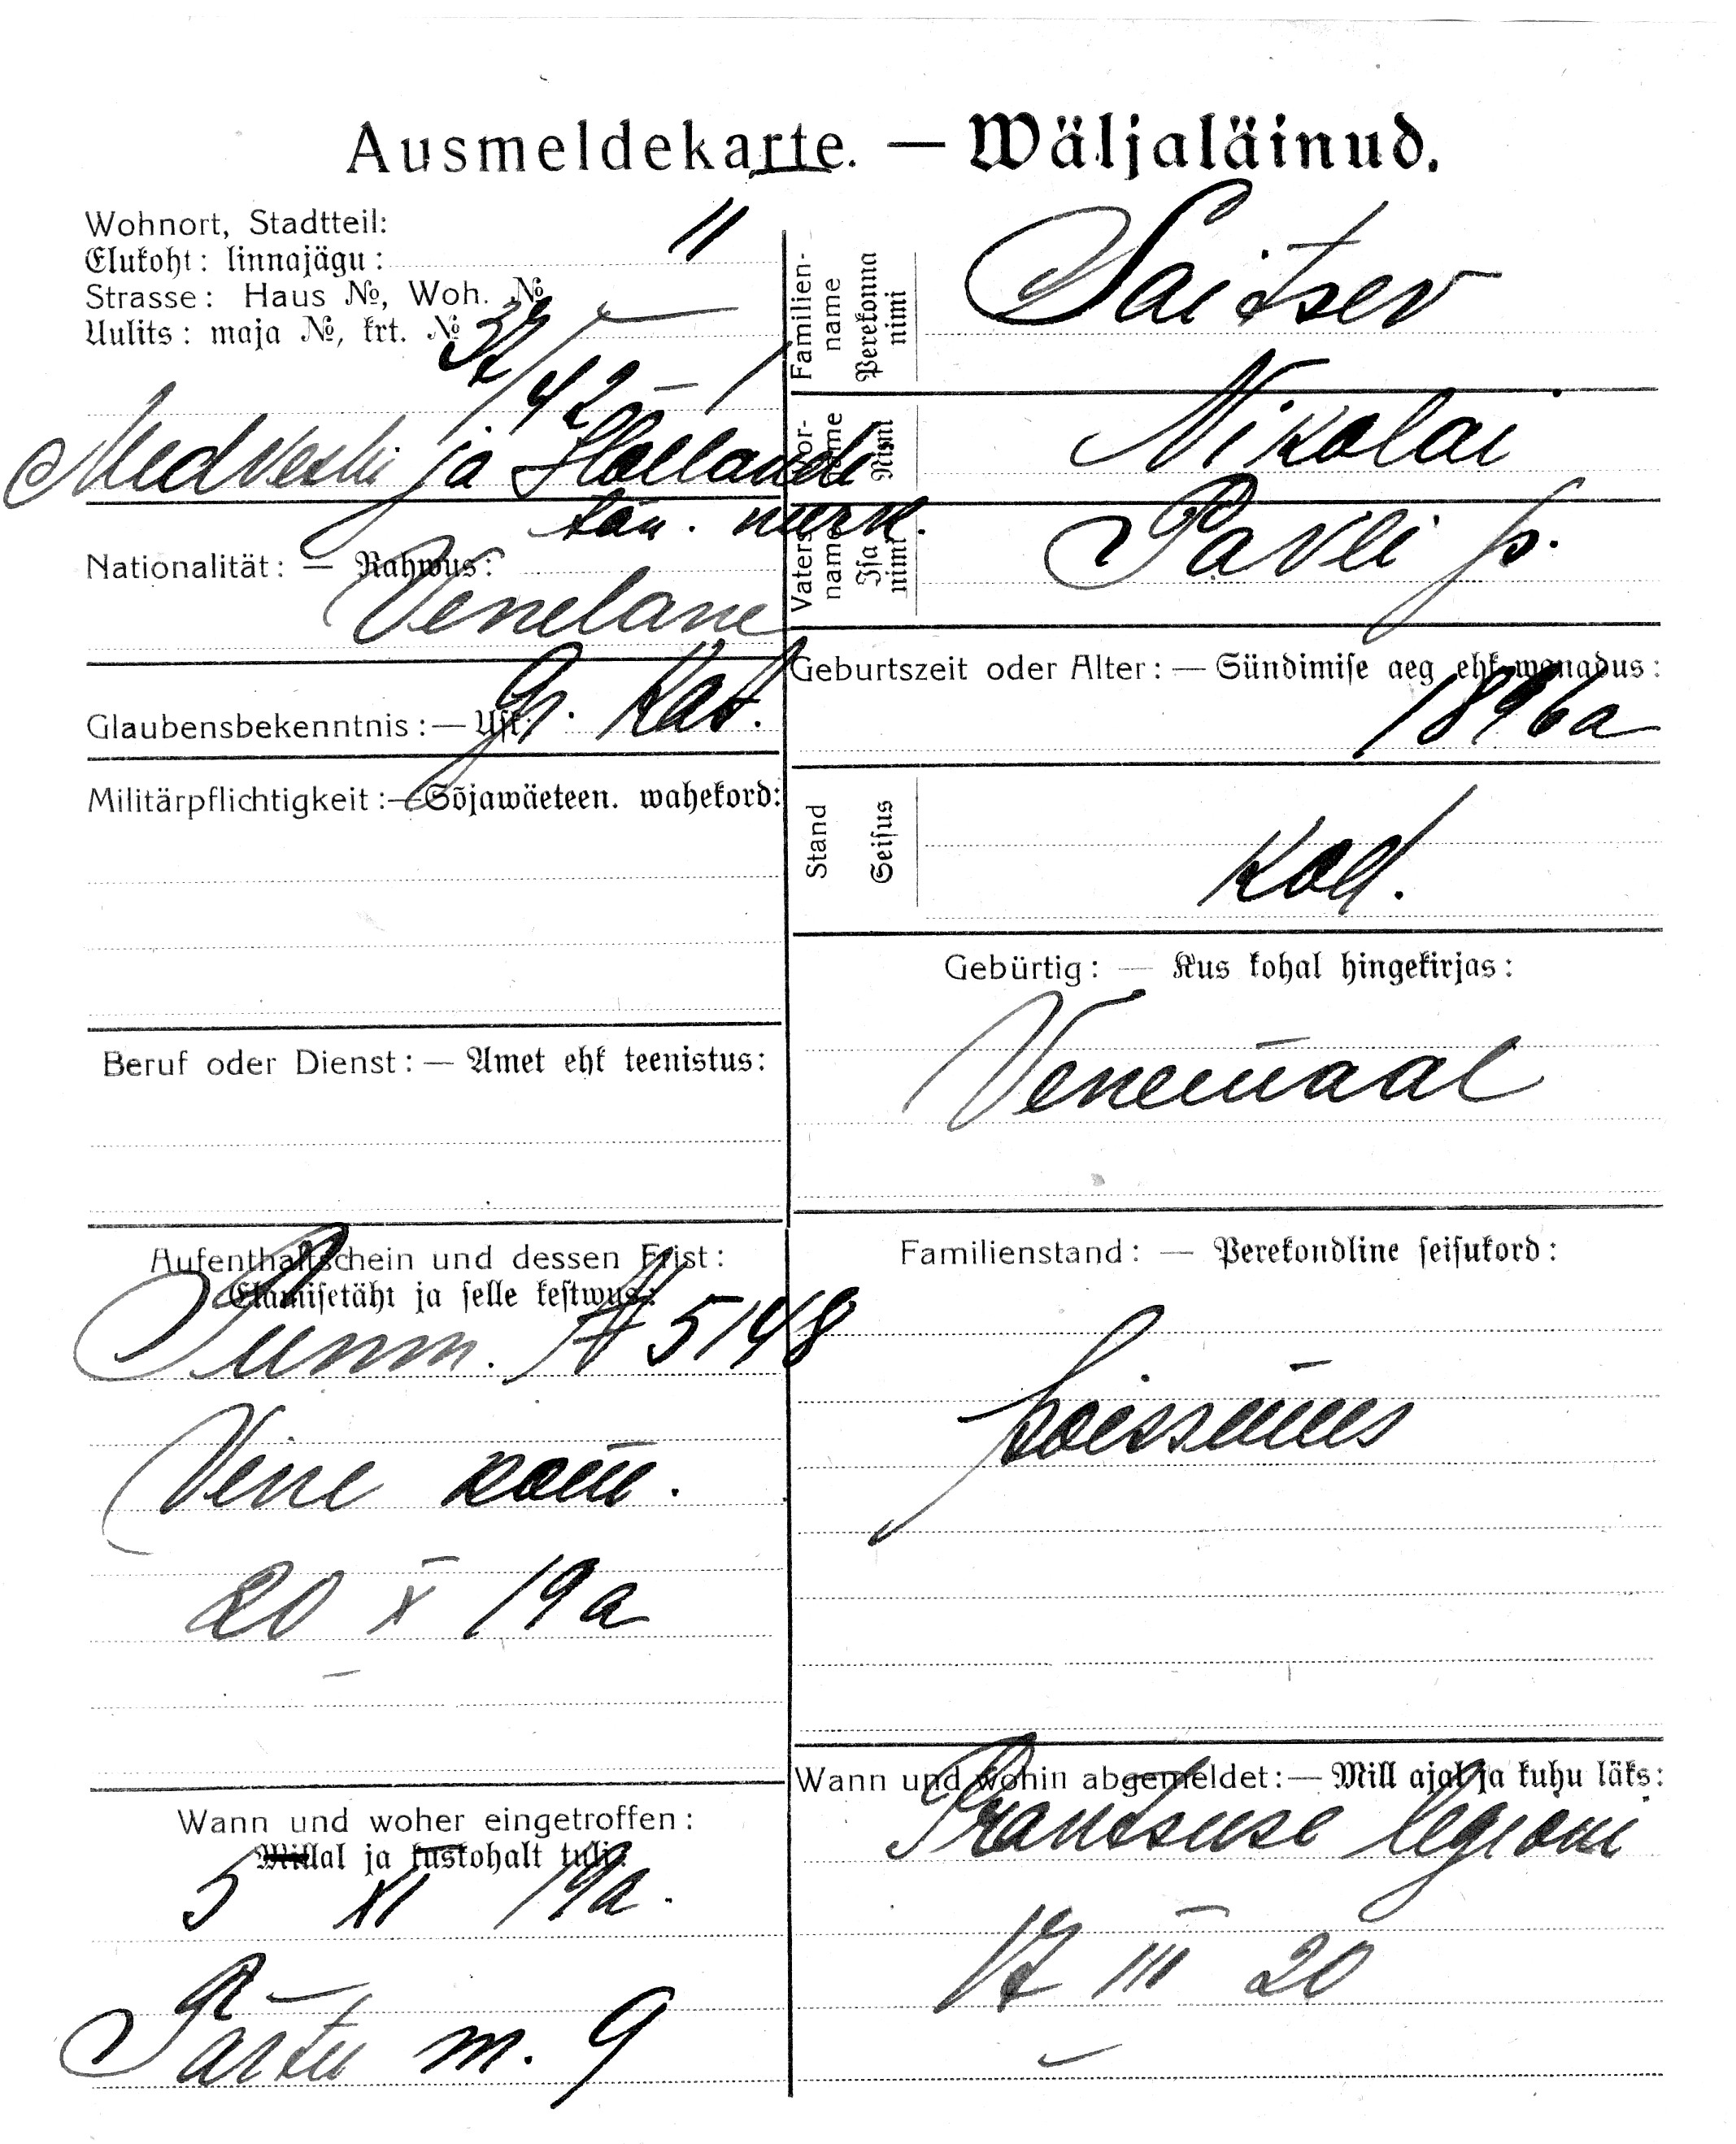 Ausmeldekarte. — Wäljaläinud.
Wohnort, Stadtteil:
Elukoht: linnajägu: II
Strasse: Haus №, Woh. №
Uulits: maja №, krt. № 37/42 – 1
Medveski ja Hollandi
tän. nurk.
Nationalität: — Rahwus:
Venelane
Glaubensbekenntnis: — Usk: Gr. Kat.
Militärpflichtigkeit: — Sõjawäeteen. wahekord:
Beruf oder Dienst: — Amet ehk teenistus:
Aufenthaltschein und dessen Frist:
Elamisetäht ja selle kestwus:
Tunn. № 5148
Vene kom.
20 X 19 a
Wann und woher eingetroffen:
Millal ja kuskohalt tuli:
5 XI 19a.
Tartu m. 9
Familien-
name
Perekonna
nimi
Saitsev
Vor-
name
Nimi
Nikolai
Vaters
name
Isa
nimi
Pavli p.
Geburtszeit oder Alter: — Sündimise aeg ehk wanadus:
1896 a
Stand
Seisus
Kod.
Gebürtig: — Kus kohal hingekirjas:
Venemaal
Familienstand: — Perekondline seisukord:
poissmees
Wann und wohin abgemeldet: — Mill ajal ja kuhu läks:
Prantsuse legioni
17 III 20